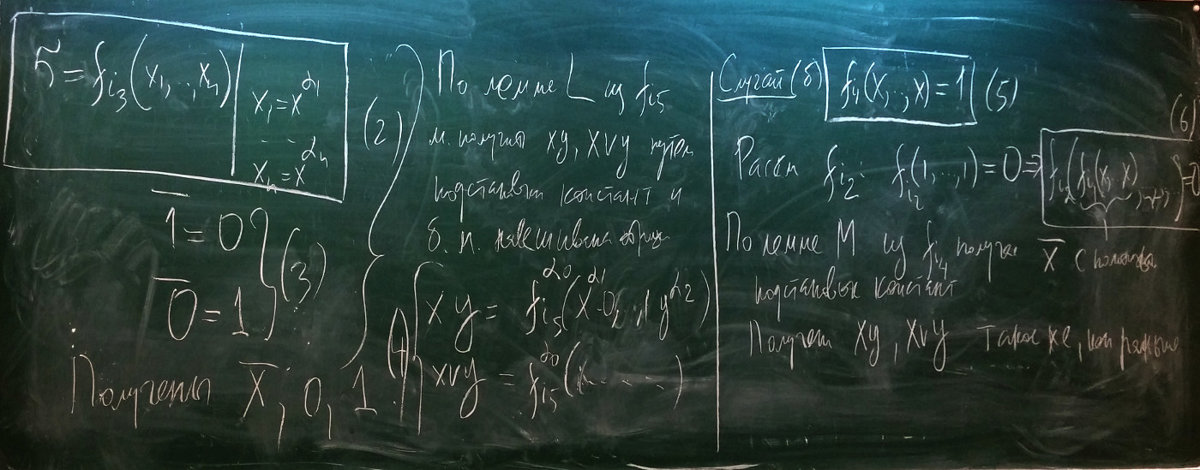 = f_{i_3}(x_1, .., x_n) | x_1 = x^{α_1}
. . .
x_n = x^{α_n}
(2)
\overline{1} = 0
\overline{0} = 1
(3)
Получены \overline{x}, 0, 1
По лемме L из f_{i_5}
м. получить xy, x∨y путем
подстановки констант и
б. м. навешивания отриц
xy = f_{i_5}^{α_0}(x^{α_1}, 0, 1, y^{α_2})
x∨y = f_{i_5}^{α_0}( . . . . )
(4)
Случай (б) f_{i_1}(x, .., x) = 1 (5)
Рассм f_{i_2}: f_{i_2}(1, .., 1) = 0 ⇒ f_{i_2}(f_{i_1}(x, .., x), ...) = 0
(6)
По лемме M из f_{i_4} получен \overline{x} с помощью
подстановки констант
Получен xy, x∨y также, как раньше